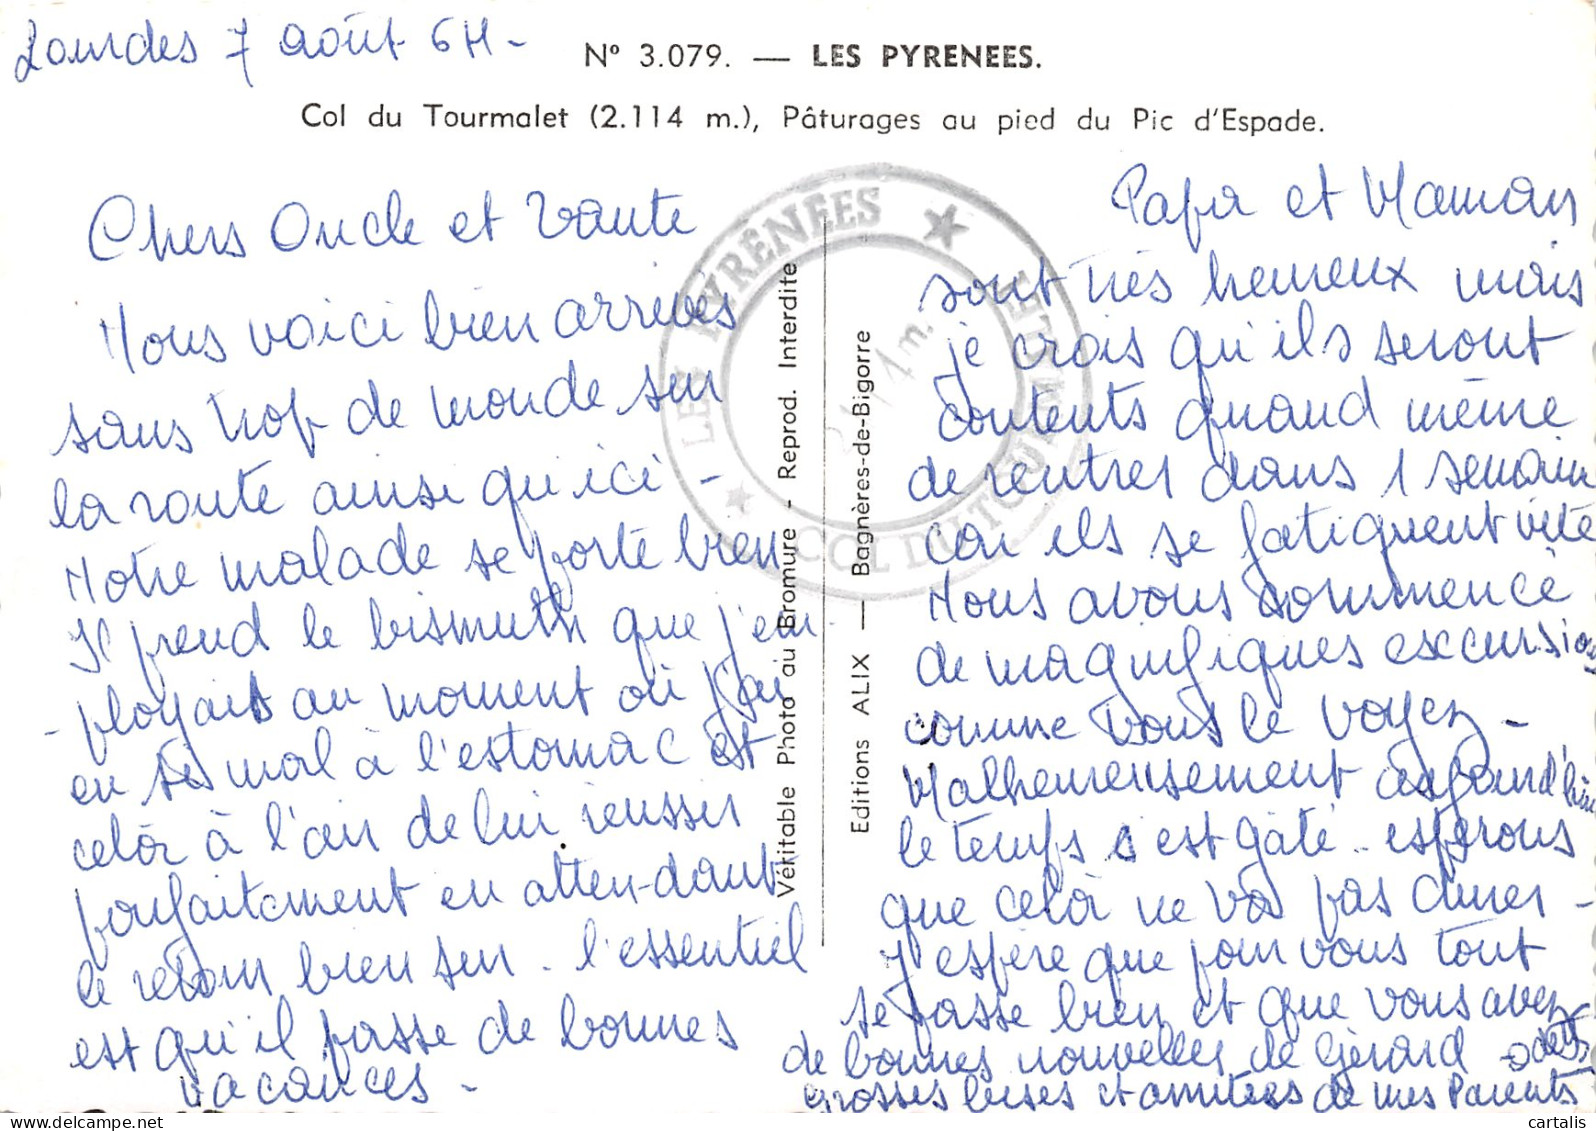 Lourdes 7 août 64 -
N° 3.079. — LES PYRENEES.
Col du Tourmalet (2.114 m.), Pâturages au pied du Pic d'Espade.
Chers Oncle et Tante
Nous voici bien arrivés
sans trop de monde sur
la route ainsi qu'ici -
Notre malade se porte bien
Il prend le bismuth que j'em
- ployais au moment où j'ai
eu ses mal à l'estomac et
celà à l'air de lui réussir
parfaitement en atten-dant
le retour bien sur. l'essentiel
est qu'il passe de bonnes
vacances -
LES PYRENEES ★ COL DU TOURMALET ★
Véritable Photo au Bromure - Reprod. Interdite
Editions ALIX — Bagnères-de-Bigorre
Papa et Maman
sont très heureux mais
je crois qu'ils seront
contents quand même
de rentrer dans 1 semain
car ils se fatiguent vite
Nous avons commencé
de magnifiques excursions
comme vous le voyez -
Malheureusement aujourd'hui
le temps s'est gâté. espérons
que celà ne va pas durer -
J'espère que pour vous tout
se passe bien et que vous avez
de bonnes nouvelles de Gérard Odette
Grosses bises et amitiés de mes Parents
cartalis